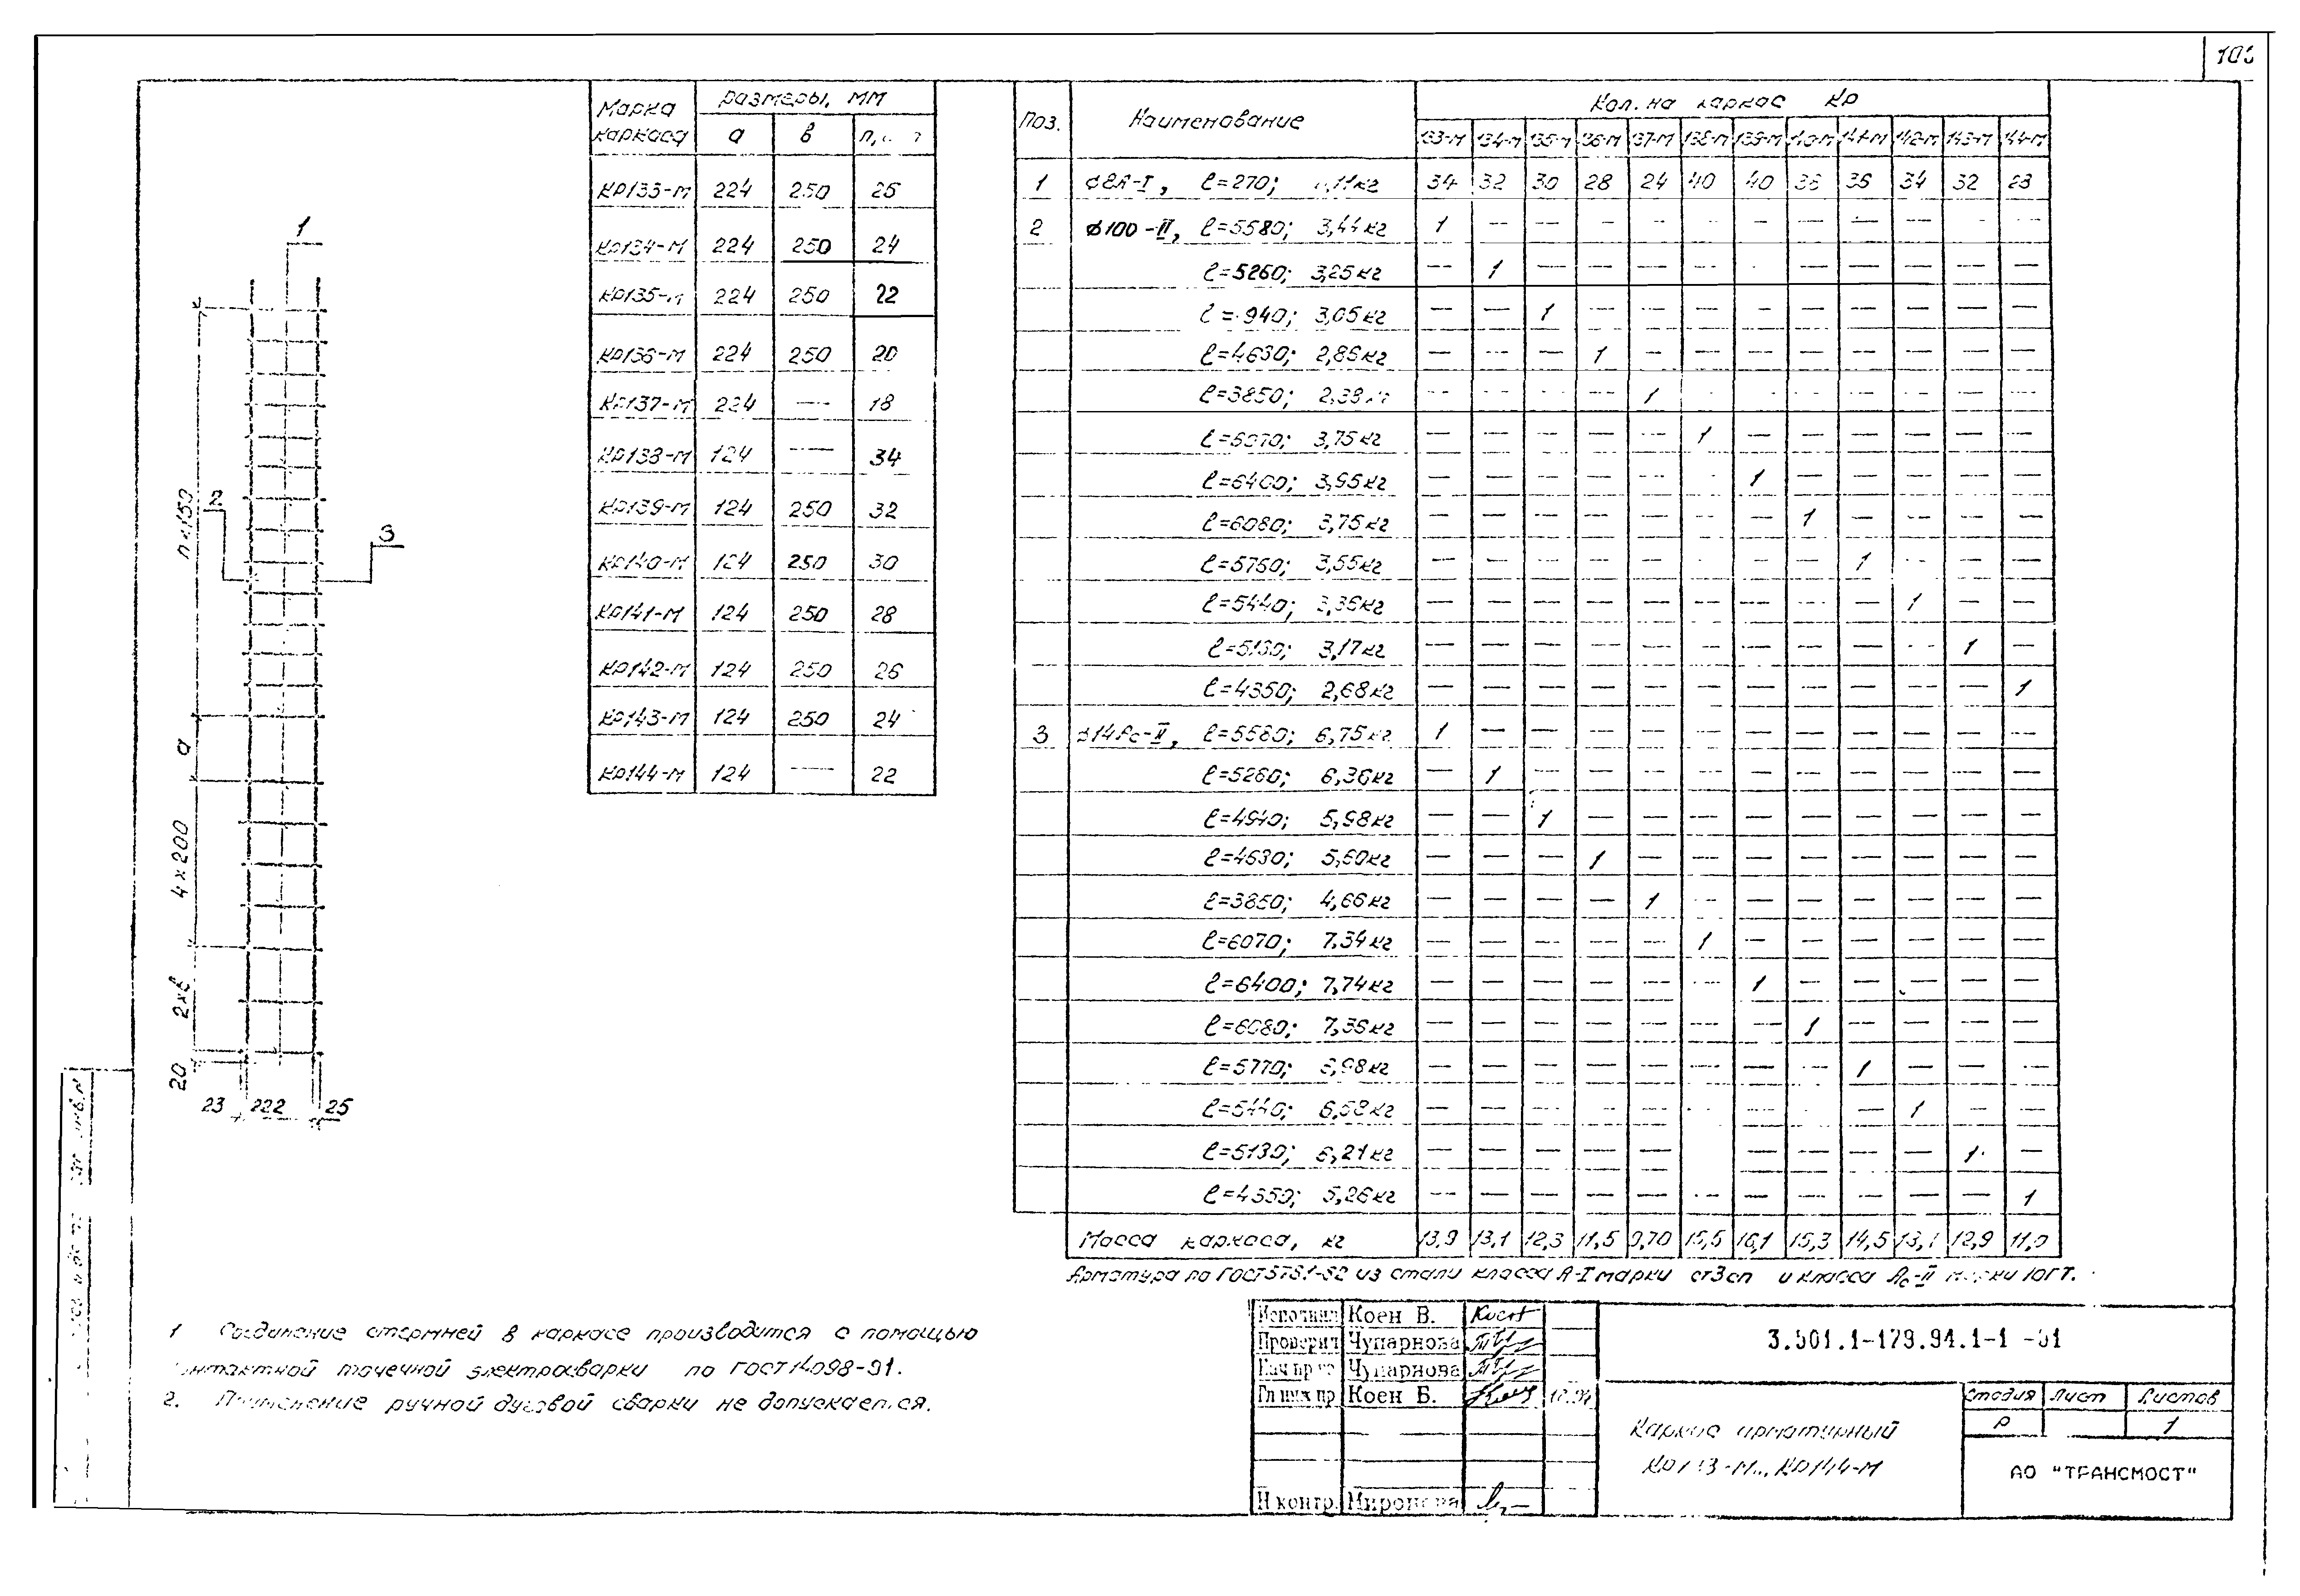 Марка каркаса размеры, мм
а в
КР133-М 224 250 26
КР134-М 224 250 24
КР135-М 224 250 22
КР136-М 224 250 20
КР137-М 224 — 18
КР138-М 124 — 34
КР139-М 124 250 32
КР140-М 124 250 30
КР141-М 124 250 28
КР142-М 124 250 26
КР143-М 124 250 24
КР144-М 124 — 22
1
2
3
n×150
а
4×200
2×в
20
23 222 25
Поз. Наименование Кол. на каркас Кр
133-М 134-М 135-М 136-М 137-М 138-М 139-М 140-М 141-М 142-М 143-М 144-М
1 ⌀8А-I, ℓ=270; 34 32 30 28 24 40 40 38 36 34 32 28
2 ⌀100-II, ℓ=5580; 3,44кг 1 — — — — — — — — — — —
ℓ=5260; 3,25кг — 1 — — — — — — — — — —
940; 3,05кг — — 1 — — — — — — — — —
ℓ=4630; 2,86кг — — — 1 — — — — — — — —
ℓ=3850; 2,38 — — — — 1 — — — — — — —
ℓ=6070; 3,75кг — — — — — 1 — — — — — —
ℓ=6400; 3,95кг — — — — — — 1 — — — — —
ℓ=6080; 3,75кг — — — — — — — 1 — — — —
ℓ=5760; 3,55кг — — — — — — — — 1 — — —
ℓ=5440; 3,36кг — — — — — — — — — 1 — —
ℓ=5130; 3,17кг — — — — — — — — — — 1 —
ℓ=4350; 2,68кг — — — — — — — — — — — 1
3 ⌀14Ас-II, ℓ=5580; 6,75кг 1 — — — — — — — — — — —
ℓ=5260; 6,36кг — 1 — — — — — — — — — —
ℓ=4940; 5,98кг — — 1 — — — — — — — — —
ℓ=4630; 5,60кг — — — 1 — — — — — — — —
ℓ=3850; 4,66кг — — — — 1 — — — — — — —
ℓ=6070; 7,34кг — — — — — 1 — — — — — —
ℓ=6400; 7,74кг — — — — — — 1 — — — — —
ℓ=6080; 7,36кг — — — — — — — 1 — — — —
ℓ=5770; 6,98кг — — — — — — — — 1 — — —
ℓ=5440; 6,58кг — — — — — — — — — 1 — —
ℓ=5130; 6,21кг — — — — — — — — — — 1 —
ℓ=4350; 5,26кг — — — — — — — — — — — 1
Масса каркаса, кг 13,9 13,1 12,3 11,5 9,70 15,5 16,1 15,3 14,5 13,1 12,9 11,0
Арматура по ГОСТ5781-82 из стали класса А-I марки ст3сп и класса Ас-II марки 10ГТ.
1 Соединение стержней в каркасе производится с помощью
контактной точечной электросварки по ГОСТ14098-91.
2. Применение ручной дуговой сварки не допускается.
Исполнил Коен В.
Проверил Чупарнова
Нач пр го Чупарнова
Гл инж пр Коен Б. 12.94
Н контр. Миронова
3.501.1-179.94.1-1 -31
Каркас арматурный
КР133-М.., КР144-М
Стадия Лист Листов
Р 1
АО "ТРАНСМОСТ"